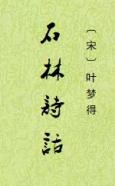 〔宋〕叶梦得
石林詩話